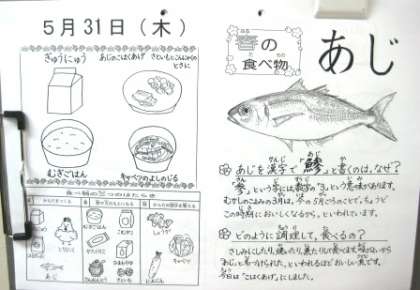 5月31日(木)
ぎゅうにゅう
あじのこはくあげ
さといもとこんにゃくの
とさに
むぎごはん
キャベツのよしのじる
春の
食べ物
あじ
あじを漢字で「鰺」と書くのは、なぜ?
「参」という字には旧暦の「3」という意味があります。
むかしのこよみの3月は、今の5月ごろのことで、ちょうど
この時期においしくなるから、といわれています。
どのように調理して、食べるの?
さしみにしたり、焼いたり、煮たりして食べます。味がよいから
あじと名づけられた、といわれるほどおいしい魚です。
今日は「こはくあげ」にしました。